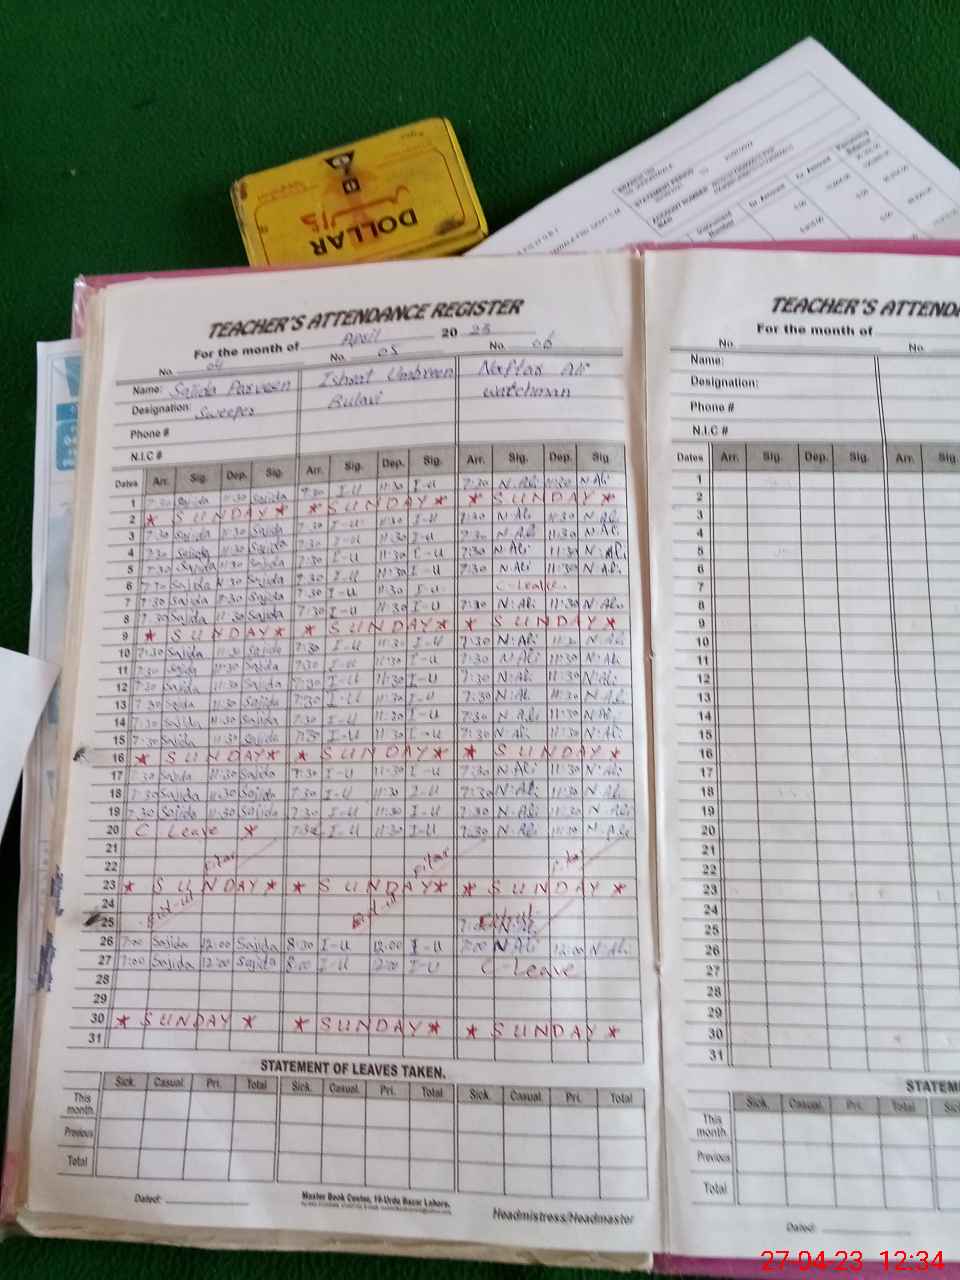 DOLLAR
TEACHER'S ATTENDANCE REGISTER
For the month of April 20 23
No. 04 No. 05 No. 06
Name: Sajida Parveen Ishrat Umbreen
Designation: Sweeper watchman
Phone #
N.I.C #
Dates Arr. Sig. Dep. Sig. Arr. Sig. Dep. Sig. Arr. Sig. Dep. Sig.
1 7:30 Sajida 11:30 Sajida 7:30 I-U 11:30 I-U 7:30 N.Ali 11:30 N.Ali
2 * SUNDAY * * SUNDAY * * SUNDAY *
3 7:30 Sajida 11:30 Sajida 7:30 I-U 11:30 I-U 7:30 N.Ali 11:30 N.Ali
4 7:30 Sajida 11:30 Sajida 7:30 I-U 11:30 I-U 7:30 N.Ali 11:30 N.Ali
5 7:30 Sajida 11:30 Sajida 7:30 I-U 11:30 I-U 7:30 N Ali 11:30 N.Ali
6 7:30 Sajida 11:30 Sajida 7:30 I-U 11:30 I-U 7:30 N.Ali 11:30 N.Ali
7 7:30 Sajida 11:30 Sajida 7:30 I-U 11:30 I-U C-Leave.
8 7:30 Sajida 11:30 Sajida 7:30 I-U 11:30 I-U 7:30 N.Ali 11:30 N.Ali
9 * SUNDAY * * SUNDAY * * SUNDAY *
10 7:30 Sajida 11:30 Sajida 7:30 I-U 11:30 I-U 7:30 N.Ali 11:30 N.Ali
11 7:30 Sajida 11:30 Sajida 7:30 I-U 11:30 I-U 7:30 N.Ali 11:30 N.Ali
12 7:30 Sajida 11:30 Sajida 7:30 I-U 11:30 I-U 7:30 N.Ali 11:30 N.Ali
13 7:30 Sajida 11:30 Sajida 7:30 I-U 11:30 I-U 7:30 N.Ali 11:30 N.Ali
14 7:30 Sajida 11:30 Sajida 7:30 I-U 11:30 I-U 7:30 N.Ali 11:30 N.Ali
15 7:30 Sajida 11:30 Sajida 7:30 I-U 11:30 I-U 7:30 N.Ali 11:30 N.Ali
16 * SUNDAY * * SUNDAY * * SUNDAY *
17 7:30 Sajida 11:30 Sajida 7:30 I-U 11:30 I-U 7:30 N.Ali 11:30 N.Ali
18 7:30 Sajida 11:30 Sajida 7:30 I-U 11:30 I-U 7:30 N.Ali 11:30 N.Ali
19 7:30 Sajida 11:30 Sajida 7:30 I-U 11:30 I-U 7:30 N.Ali 11:30 N.Ali
20 C Leave * 7:30 I-U 11:30 I-U 7:30 N.Ali 11:30 N-Ali
21
22 Fitar Fitar Fitar
23 * SUNDAY * * SUNDAY * * SUNDAY *
24 Eid-ul Eid-ul
25
26 7:00 Sajida 12:00 Sajida 8:30 I-U 12:00 I-U 7:00 N Ali 12:00 N.Ali
27 7:00 Sajida 12:00 Sajida 8:00 I-U 12:00 I-U C-Leave
28
29
30 * SUNDAY * * SUNDAY * * SUNDAY *
31
STATEMENT OF LEAVES TAKEN.
Sick. Casual. Pri. Total Sick. Casual. Pri. Total Sick. Casual. Pri. Total
This month.
Previous
Total
Dated:
Master Book Center, 19-Urdu Bazar Lahore.
Headmistress/Headmaster
TEACHER'S ATTENDA
For the month of
No. No.
Name:
Designation:
Phone #
N.I.C #
Dates Arr. Sig. Dep. Sig. Arr. Sig.
1
2
3
4
5
6
7
8
9
10
11
12
13
14
15
16
17
18
19
20
21
22
23
24
25
26
27
28
29
30
31
STATEM
Sick. Casual. Pri. Total
This month.
Previous
Total
Dated:
27-04-23 12:34